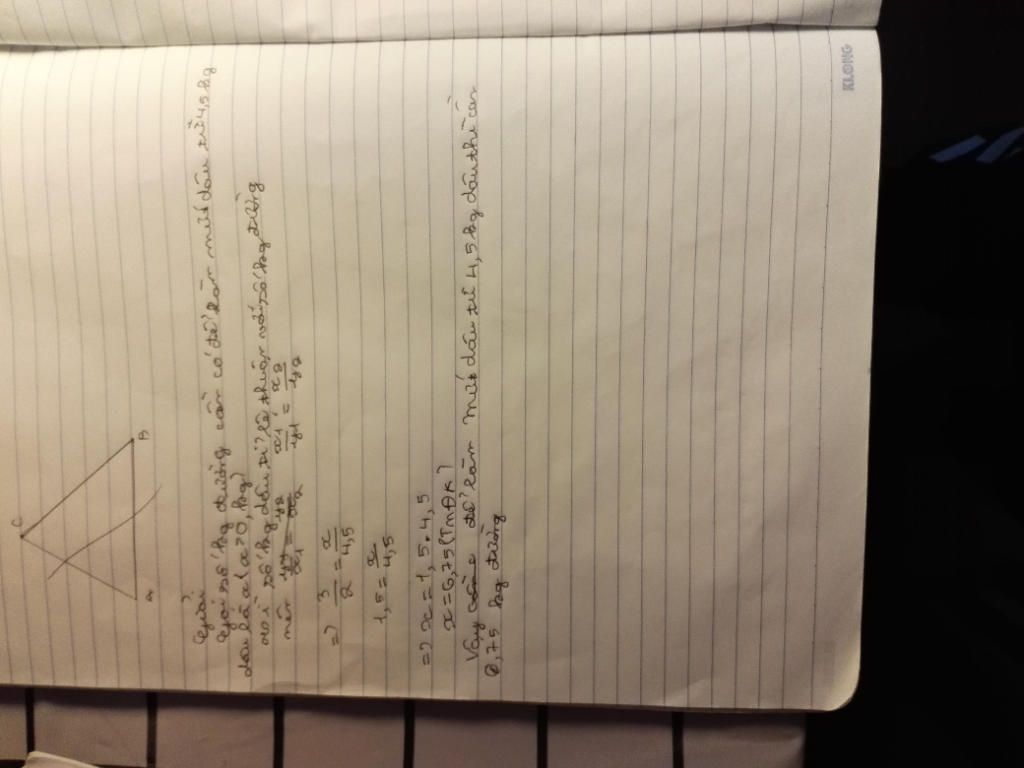 C
A
B
Giải
Gọi số kg đường cần có để làm mứt dâu từ 4,5 kg
dâu là x (x>0, kg)
Vì số kg dâu tỉ lệ thuận với số kg đường
nên x1/y1 = x2/y2
=) 3/2 = x/4,5
1,5 = x/4,5
=) x = 1,5 . 4,5
x = 6,75 (TmĐK)
Vậy để làm mứt dâu từ 4,5 kg dâu thì cần
6,75 kg đường
KLONG